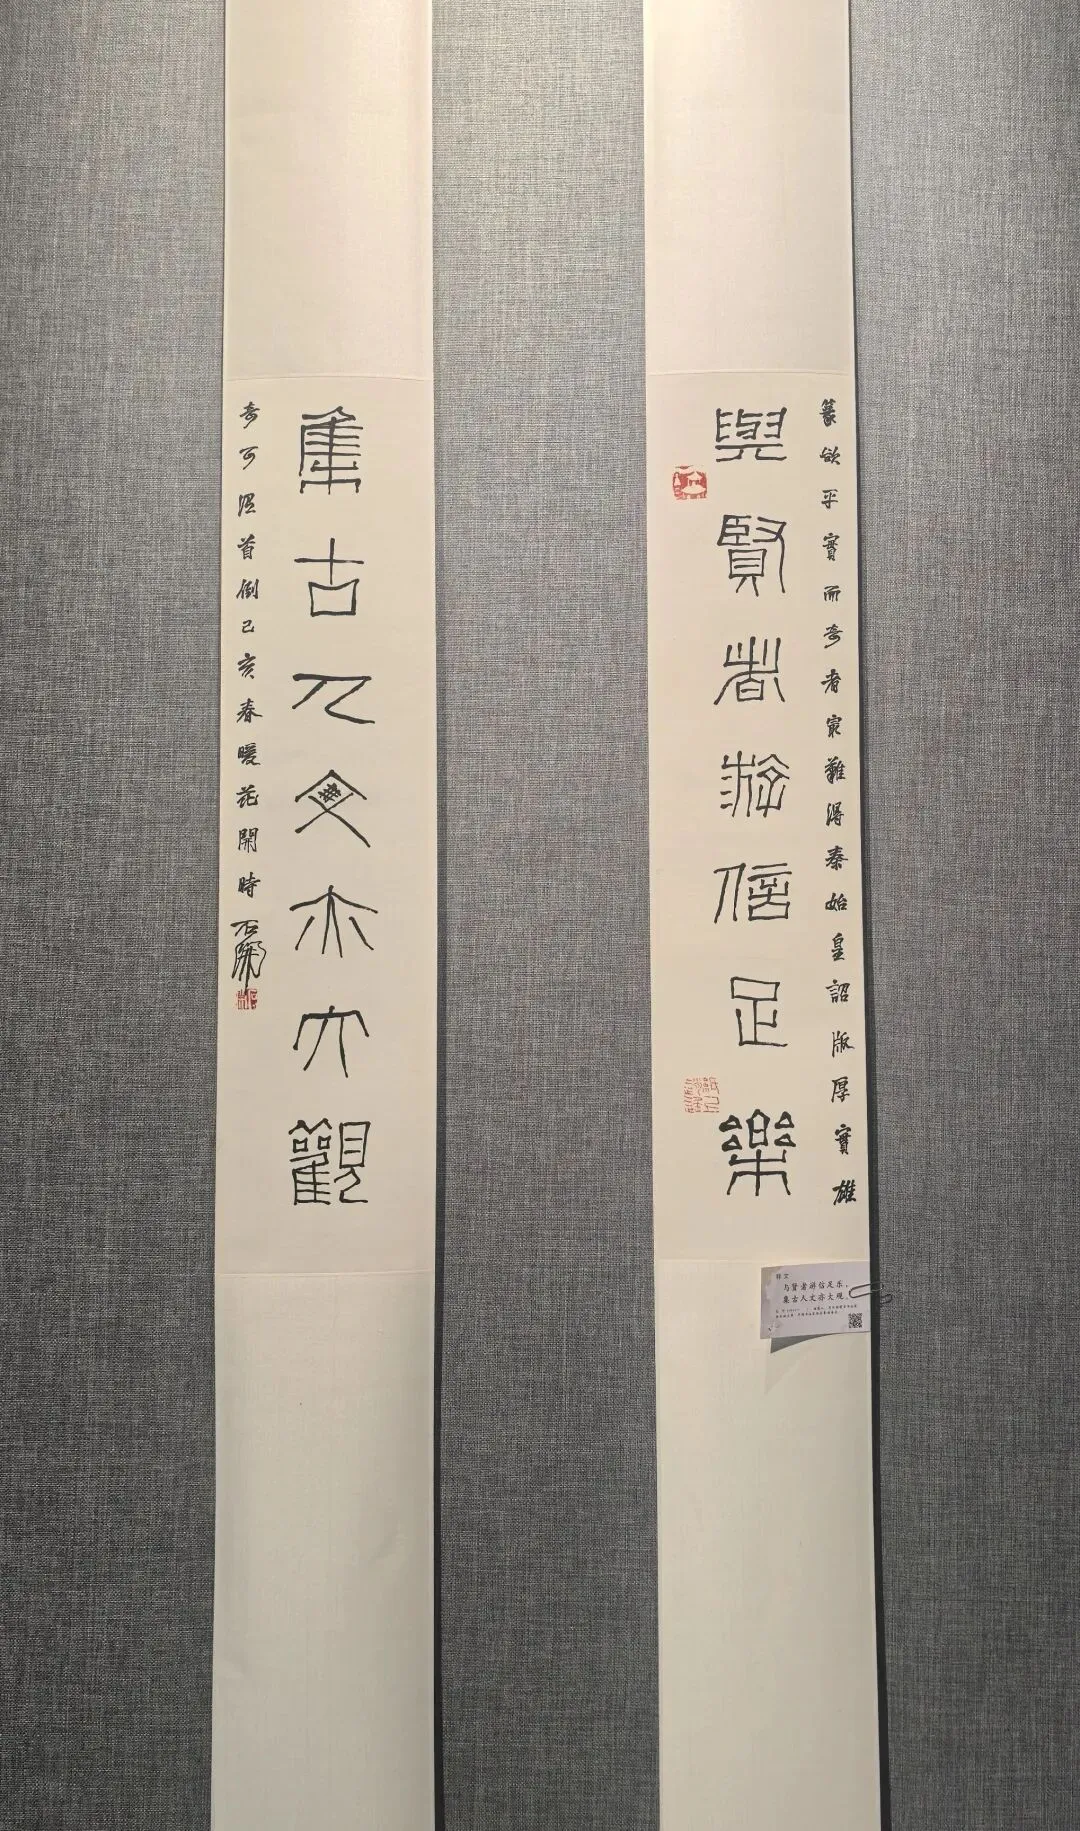 篆欲平實而奇者宲難得秦始皇詔版厚實雄
與賢者游信足樂
集古人文亦大觀
奇可湼首倒己亥春暖花開時石開
释文
与贤者游信足乐，
集古人文亦大观。